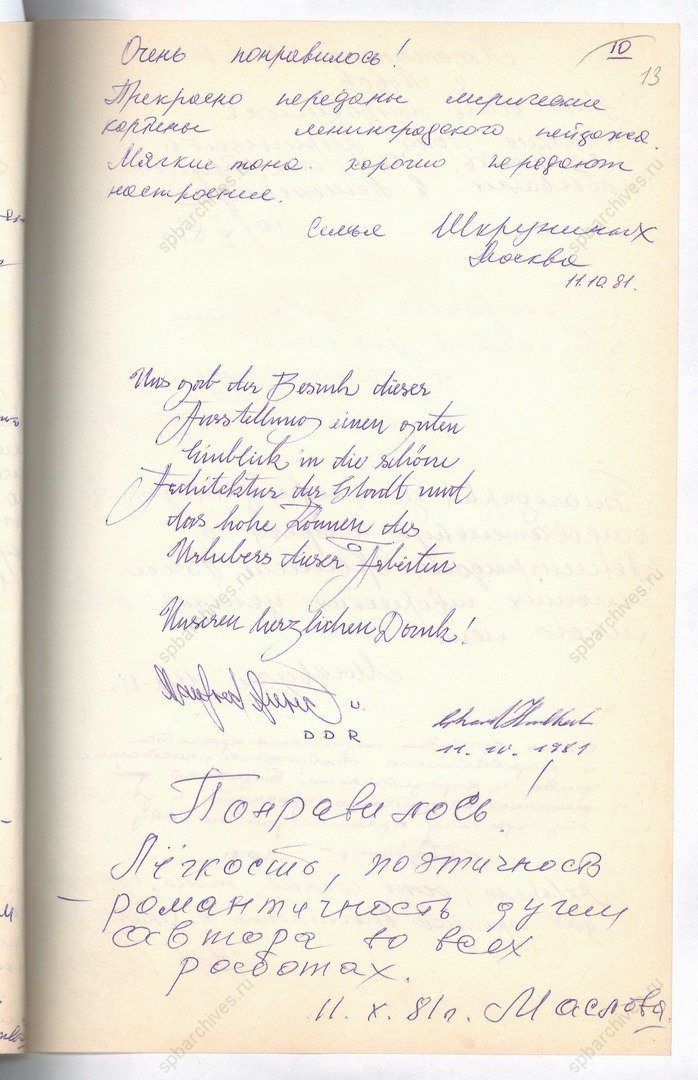 10
13
Очень понравилось!
Прекрасно переданы лирические
картины ленинградского пейзажа.
Мягкие тона хорошо передают
настроение.
Семья Шкруниных
Москва
11.10.81.
Uns gab der Besuch dieser
Ausstellung einen guten
Einblick in die schöne
Architektur der Stadt und
das hohe Können des
Urhebers dieser Arbeiten
Unseren herzlichen Dank!
Manfred u.
DDR
11. 10. 1981
Понравилось!
Лёгкость, поэтичность
– романтичность души
автора во всех
работах.
11. X. 81г. Маслова.
spbarchives.ru
spbarchives.ru
spbarchives.ru
spbarchives.ru
spbarchives.ru
spbarchives.ru